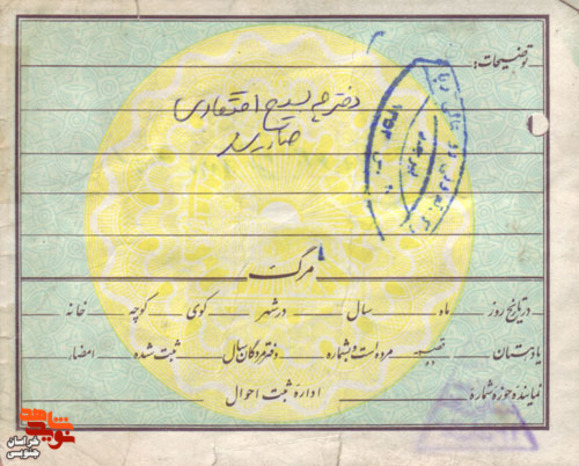 توضیحات:
دفترچه بسیج اقتصادی
صادر شد
مرگ
در تاریخ روز ماه سال در شهر کوی کوچه خانه
یا دبستان قصبه مرده است و بشماره دفتر مردگان سال ثبت شده امضاء
نماینده حوزه شماره اداره ثبت احوال
نوید شاهد
خراسان
جنوبی